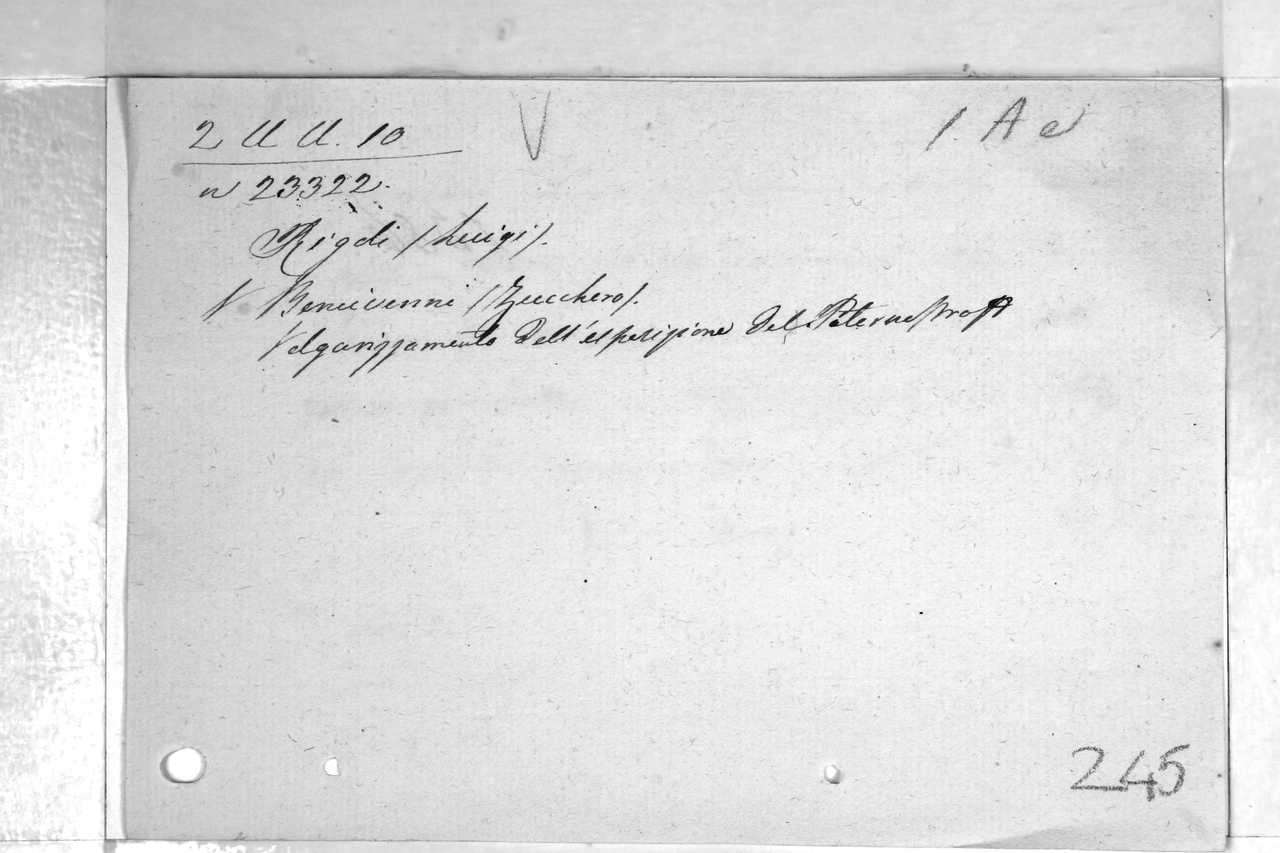 2 U U. 10
V
1. A e
n 23322.
Rigoli (Luigi).
V Bencivenni (Zucchero).
Volgarizzamento dell'esposizione del Paternostro
245